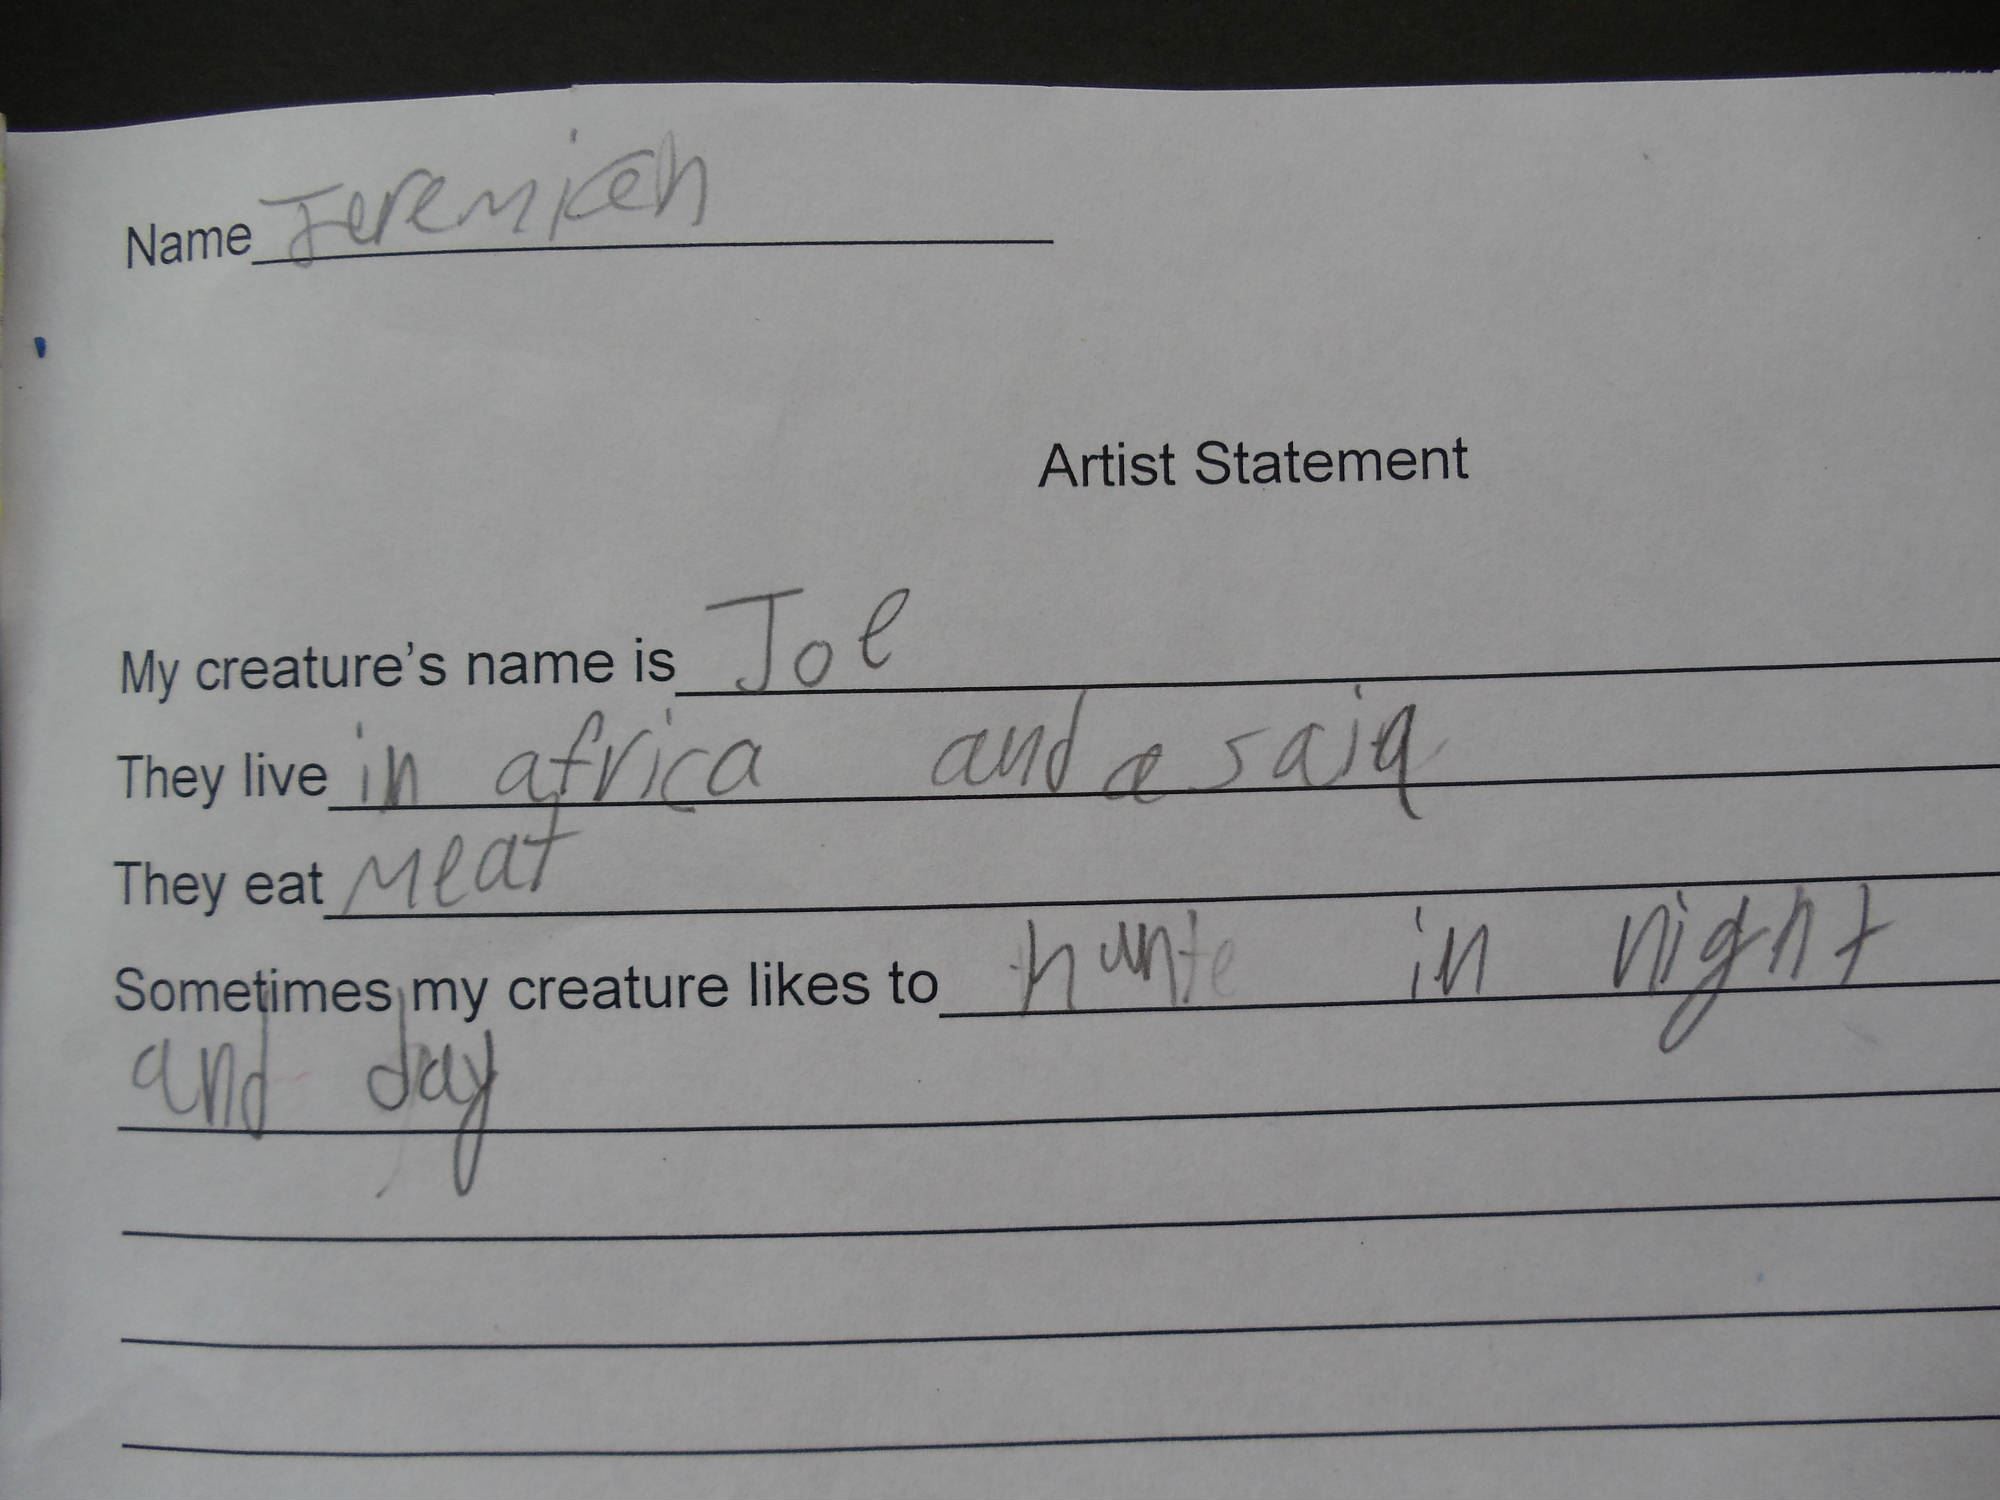 Name Jeremiah
Artist Statement
My creature's name is Joe
They live in africa and asaia
They eat meat
Sometimes my creature likes to hunte in night
and day